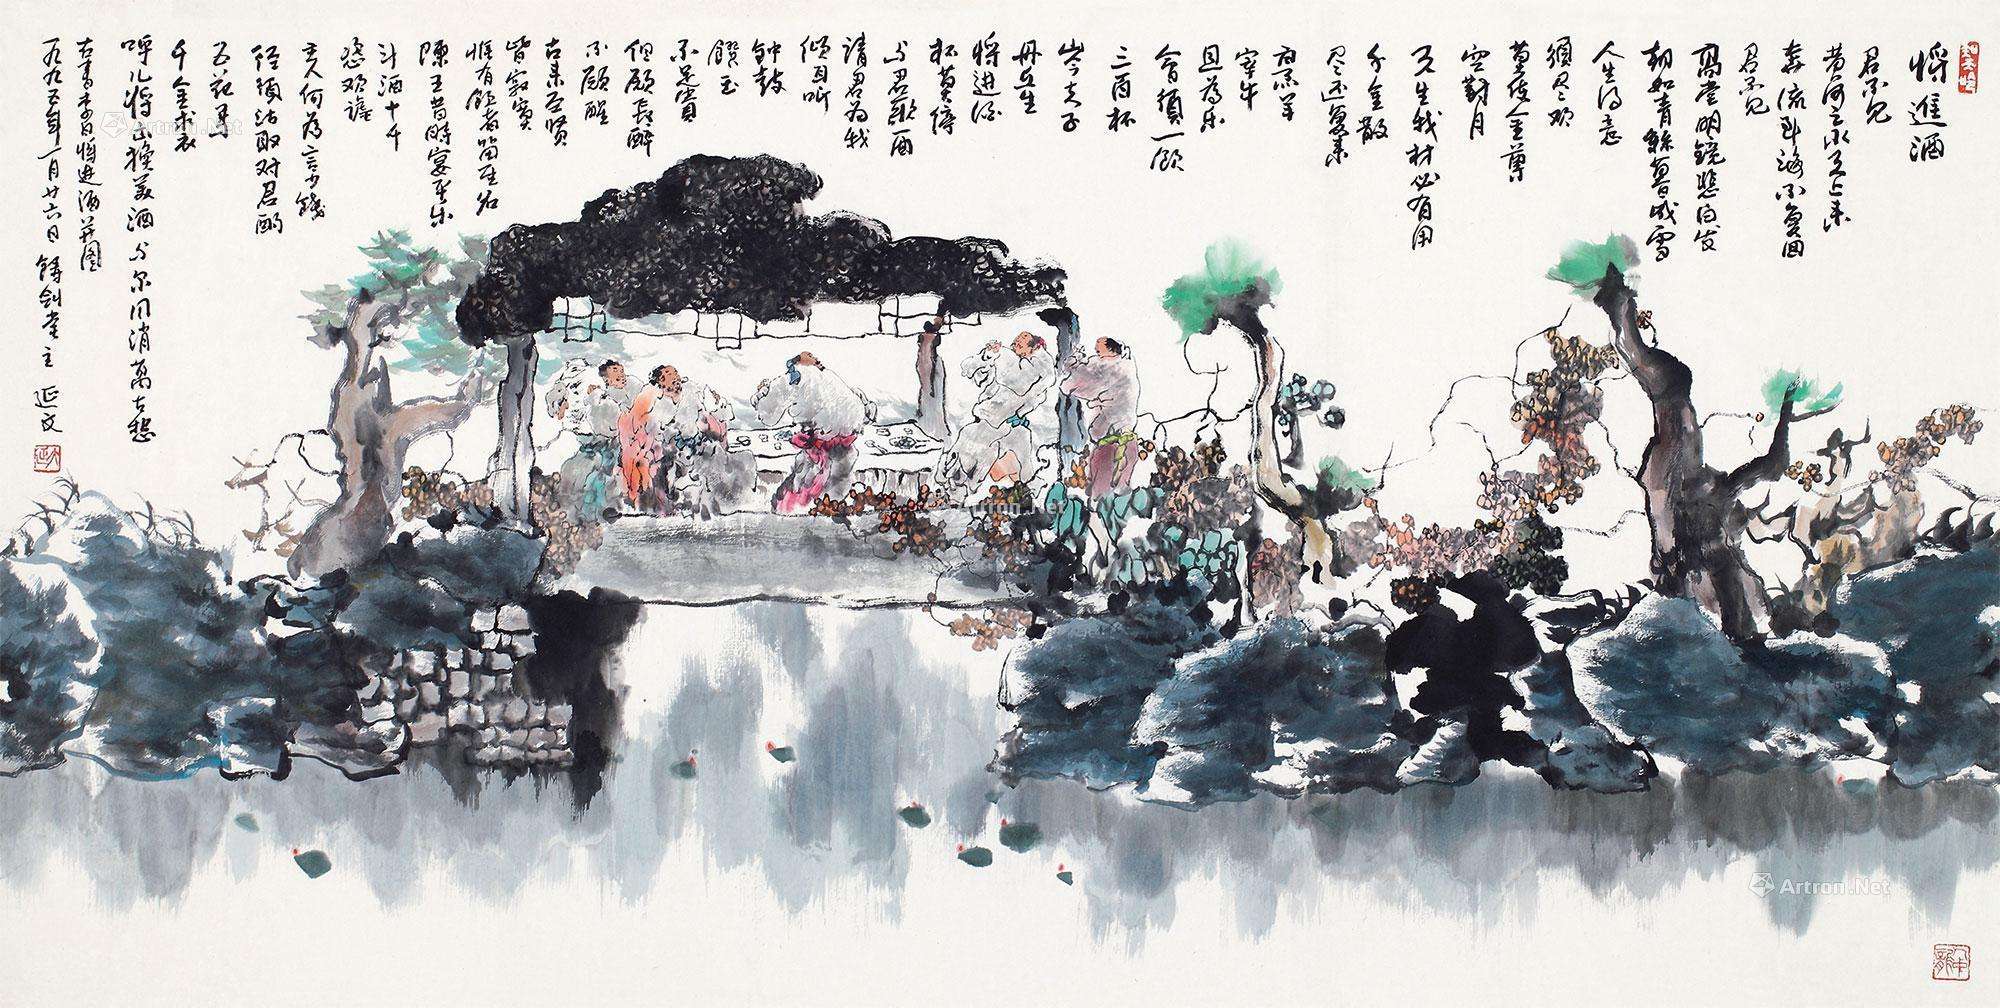 將進酒
君不见
黄河之水天上来
奔流到海不复回
君不见
高堂明镜悲白发
朝如青絲暮成雪
人生得意
须尽欢
莫使金尊
空對月
天生我材必有用
千金散
尽还复来
烹羊
宰牛
且为乐
會须一飲
三百杯
岑夫子
丹丘生
将进酒
杯莫停
与君歌一曲
请君为我
倾耳听
钟鼓
馔玉
不足貴
但願長醉
不願醒
古来圣贤
皆寂寞
惟有飲者留其名
陳王昔時宴平乐
斗酒十千
恣欢谑
主人何为言少錢
径須沽取对君酌
五花馬
千金裘
呼儿将出换美酒与尔同消萬古愁
右书李白将进酒并图
一九九五年一月廿六日 鑄剑堂主 延文
Artron.Net